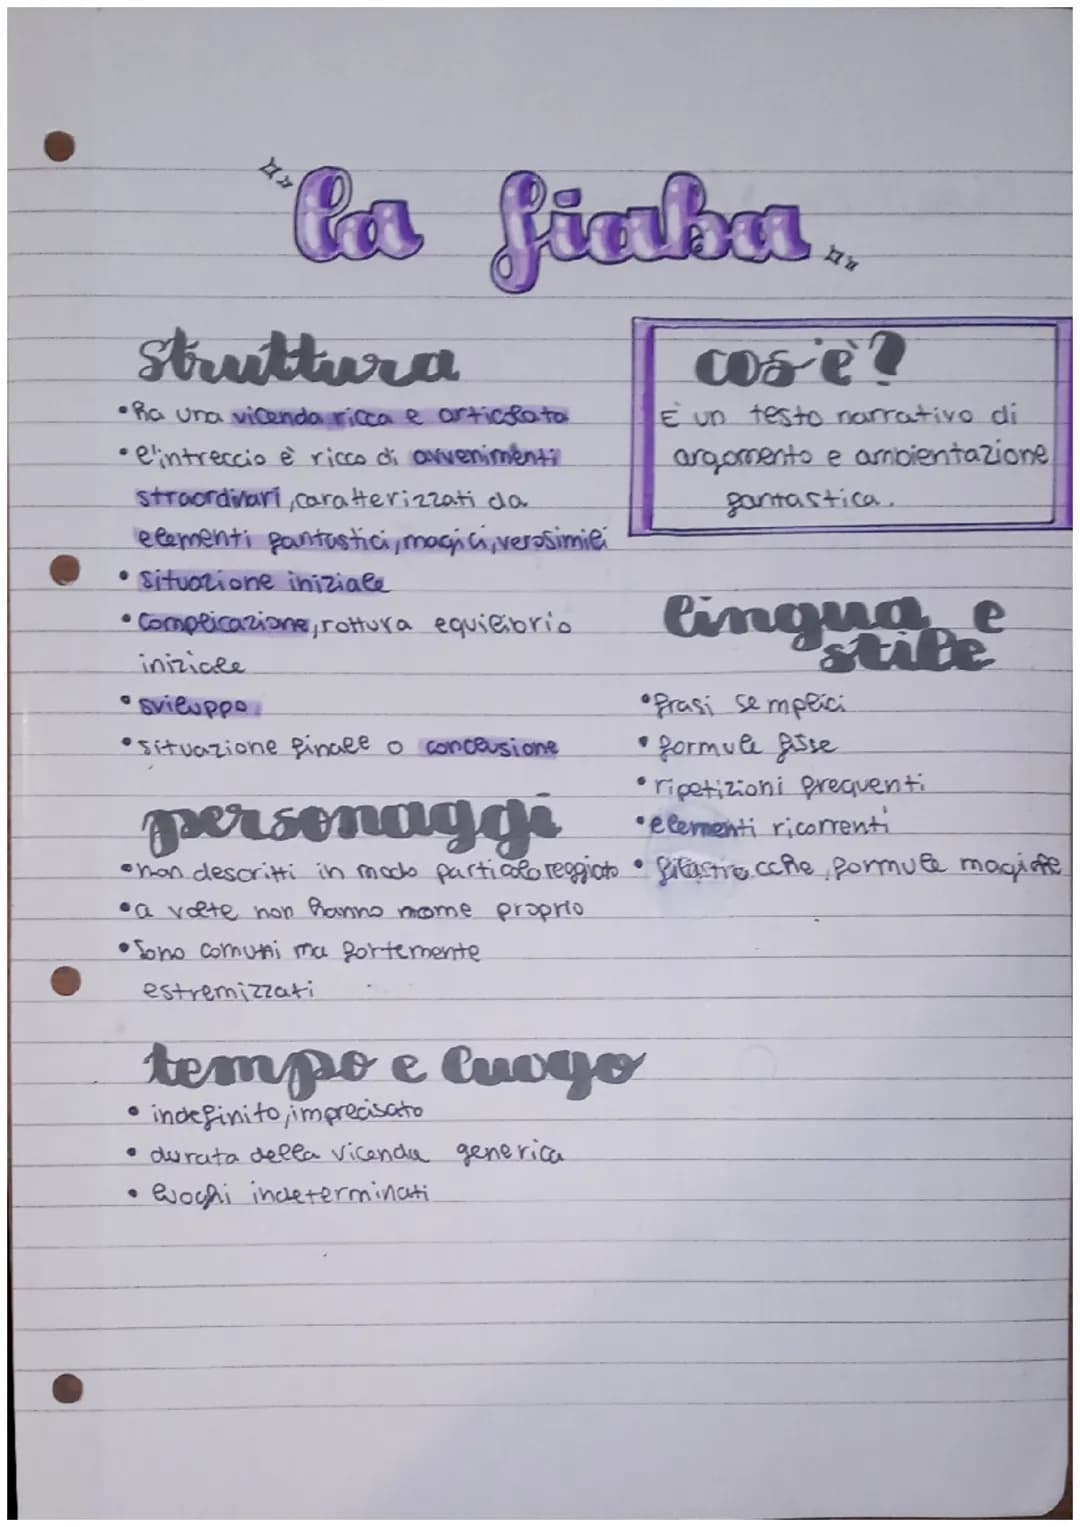 la fiaba
struttura
• ha una vicenda ricca e articolata
• l'intreccio è ricco di avvenimenti
straordinari, caratterizzati da
elementi fantastici, magici, verosimili
• situazione iniziale
• complicazione, rottura equilibrio
iniziale
• sviluppo
• situazione finale o conclusione
personaggi
• non descritti in modo particolareggiato
• a volte non hanno nome proprio
• sono comuni ma fortemente
estremizzati
tempo e luogo
• indefinito, imprecisato
• durata della vicenda generica
• luoghi indeterminati
cos'è?
È un testo narrativo di
argomento e ambientazione
fantastica.
lingua e
stile
• frasi semplici
• formule fisse
• ripetizioni frequenti
• elementi ricorrenti
• filastrocche, formule magiche